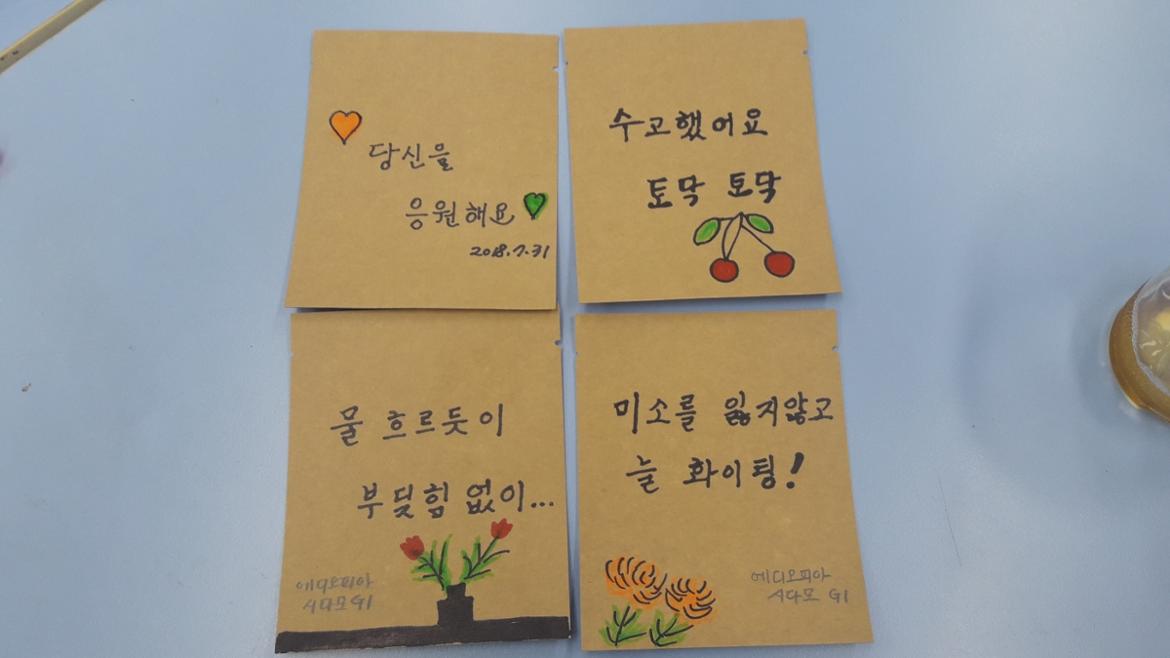 당신을
응원해요
2018.7.31
수고했어요
토닥 토닥
물 흐르듯이
부딪힘 없이...
에디오피아
시다모 G1
미소를 잃지않고
늘 화이팅!
에디오피아
시다모 G1